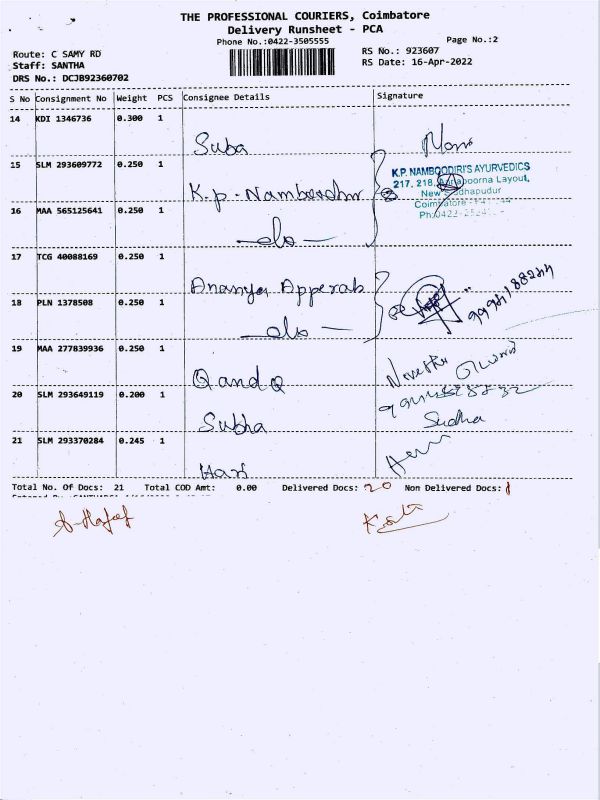 THE PROFESSIONAL COURIERS, Coimbatore
Delivery Runsheet - PCA
Phone No.:0422-3505555
Page No.:2
Route: C SAMY RD
Staff: SANTHA
DRS No.: DCJB92360702
RS No.: 923607
RS Date: 16-Apr-2022
S No Consignment No Weight PCS Consignee Details Signature
14 KDI 1346736 0.300 1
Suba
15 SLM 293609772 0.250 1
K.P. NAMBOODIRI'S AYURVEDICS
217, 218, Annapoorna Layout,
New Siddhapudur
Coimbatore
Ph:0422-
K.p - Namboodiri
16 MAA 565125641 0.250 1
-do-
17 TCG 40088169 0.250 1
Ananya Apperab
18 PLN 1378508 0.250 1
-do-
19 MAA 277839936 0.250 1
Q and Q
20 SLM 293649119 0.200 1
Subha
Sudha
21 SLM 293370284 0.245 1
Hari
Total No. Of Docs: 21 Total COD Amt: 0.00 Delivered Docs: 20 Non Delivered Docs: 1